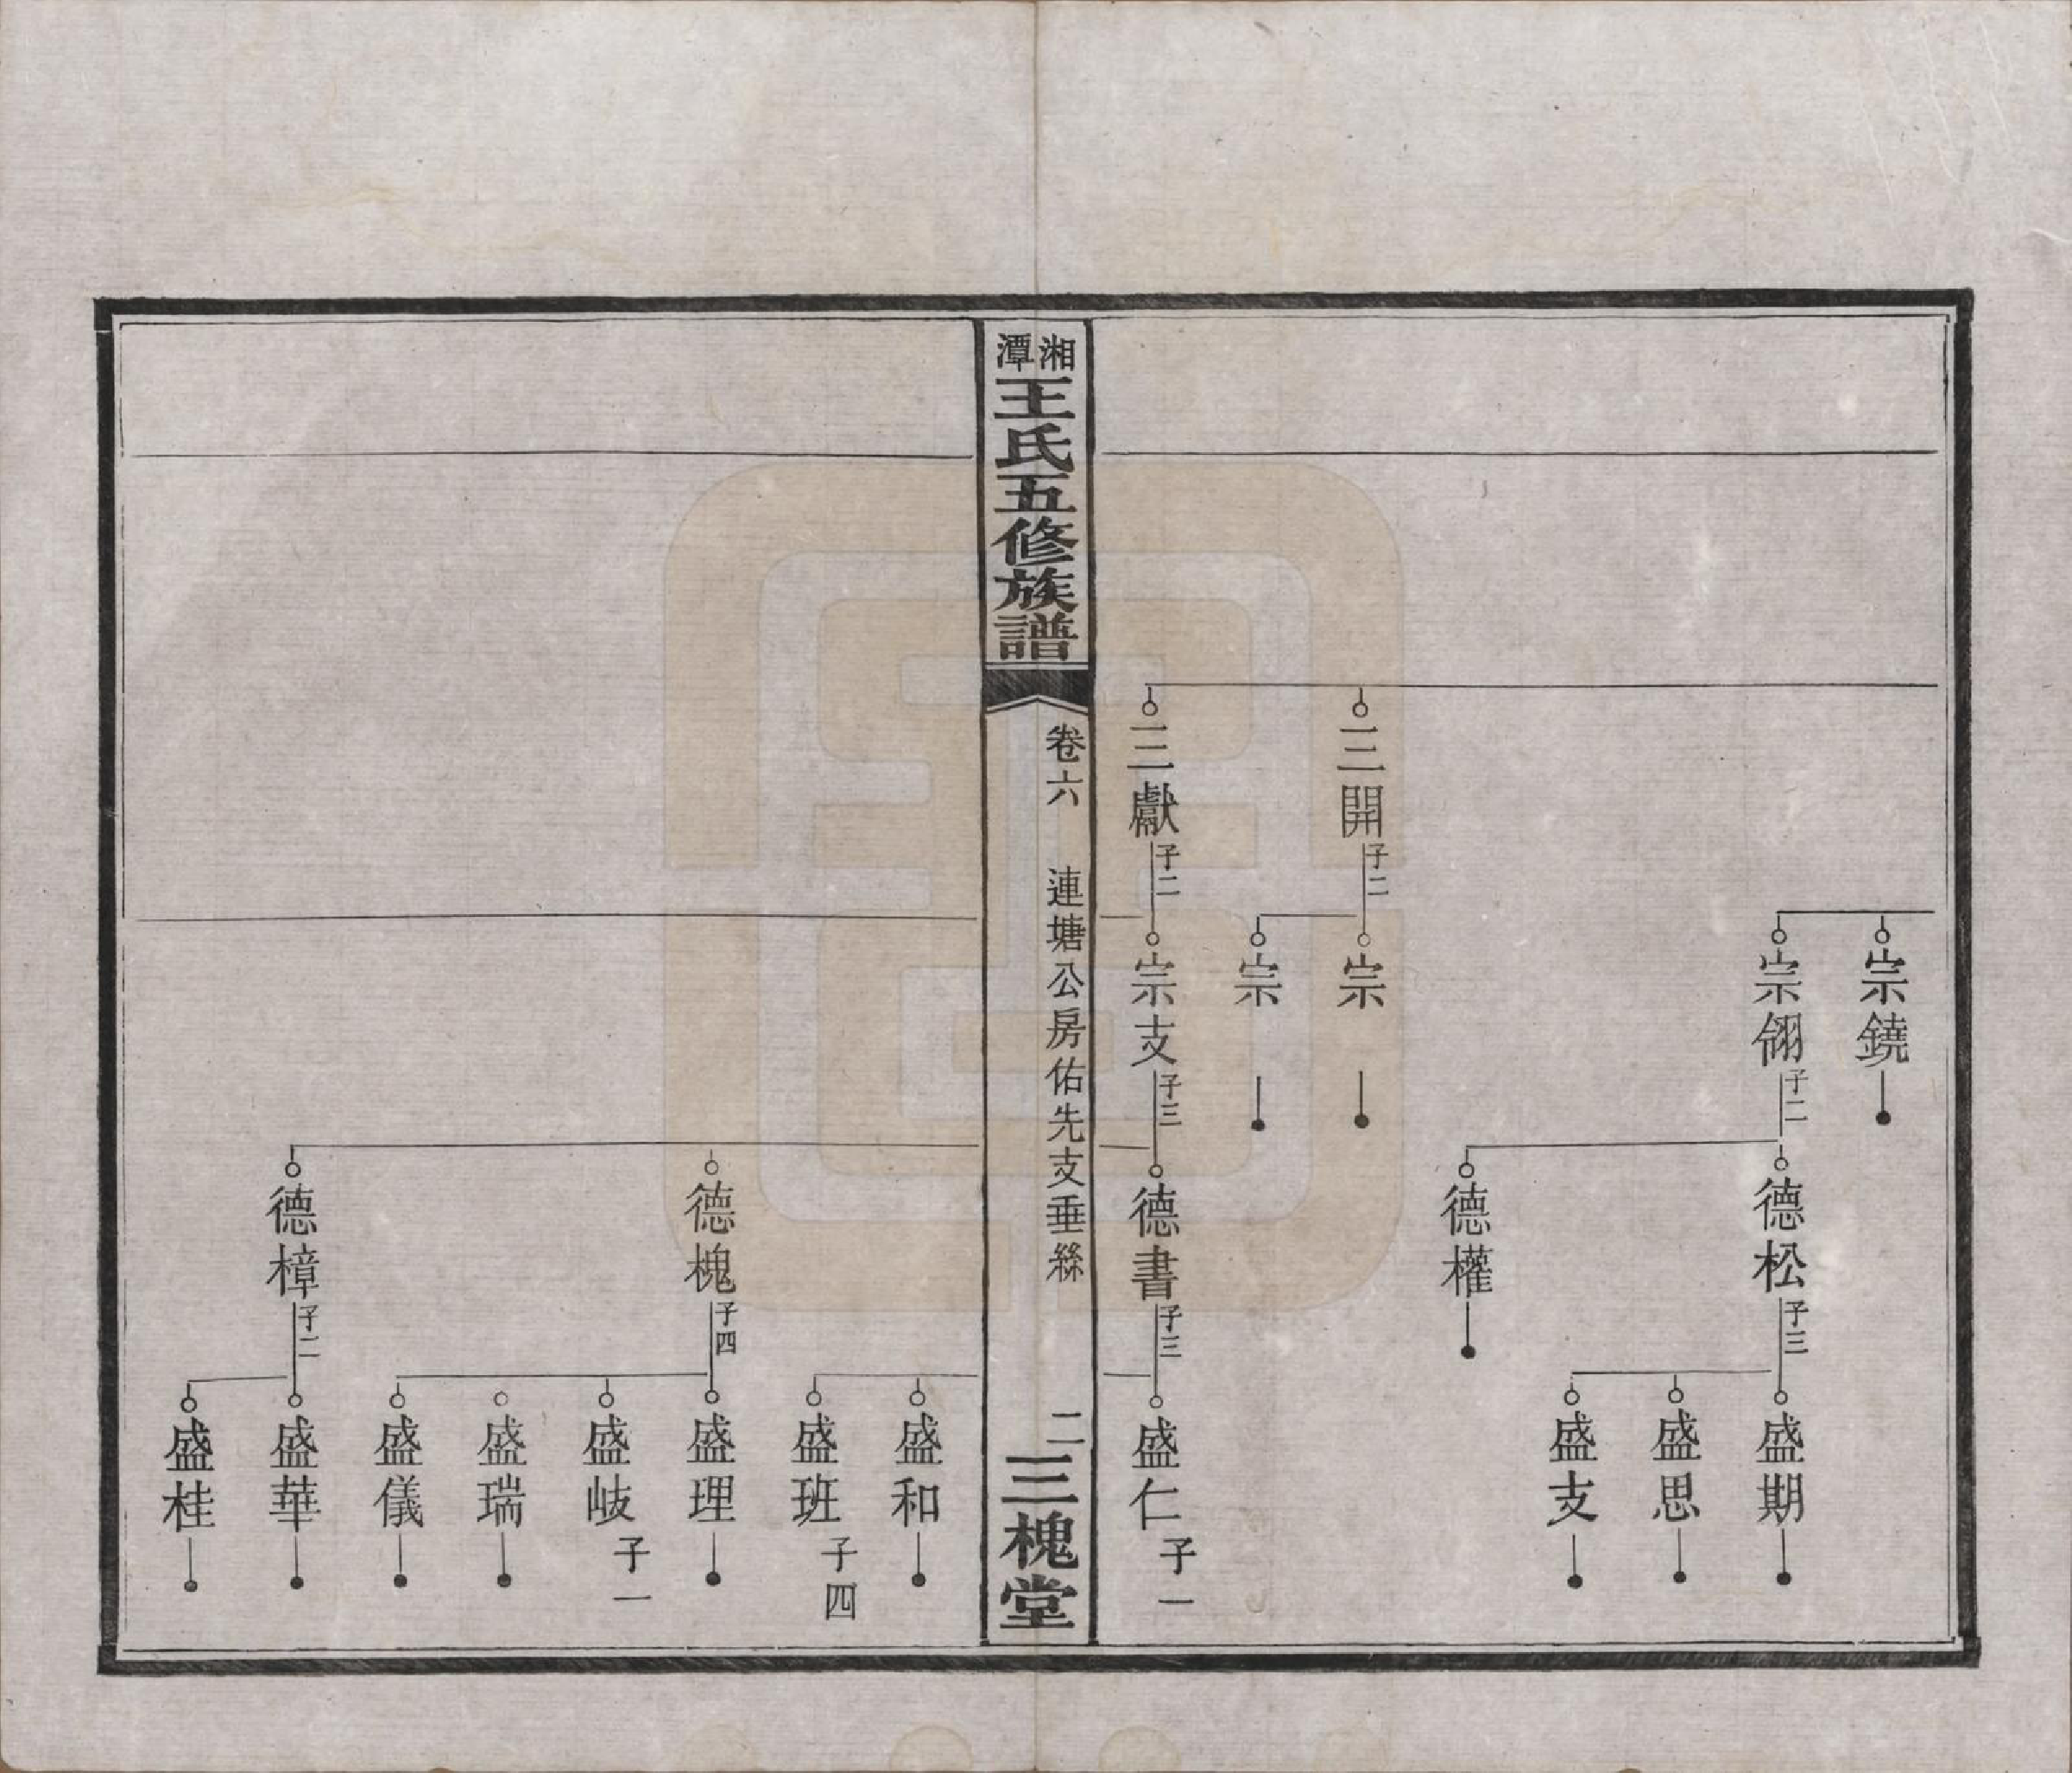 宗鐃
宗翎子二
德松子三
盛期
盛思
盛支
德權
三開子二
宗
宗
三獻子二
宗支子三
德書子三
盛仁子一
湘潭王氏五修族譜
卷六 連塘公房佑先支垂絲 二
三槐堂
盛和
盛班子四
德槐子四
盛理
盛岐子一
盛瑞
盛儀
德樟子二
盛華
盛桂